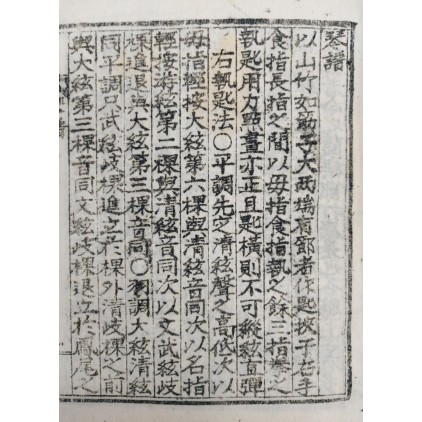 琴譜
以山竹如筋子大兩端有節者作匙挾于右手
食指長指之間以毋指食指執之餘三指拳之
執匙用力點畫亦正且匙橫則不可縱絃音彈
右執匙法〇平調先定淸絃聲之高低次以
毋指輕按大絃第六棵與淸絃音同次以名指
輕按游絃第二棵與淸絃音同次以文武絃歧
棵進退與大絃第三棵音同〇羽調大絃淸絃
同平調只武絃歧棵進立於棵外淸歧棵之前
與大絃第三棵音同文絃歧棵退立於鳳尾之